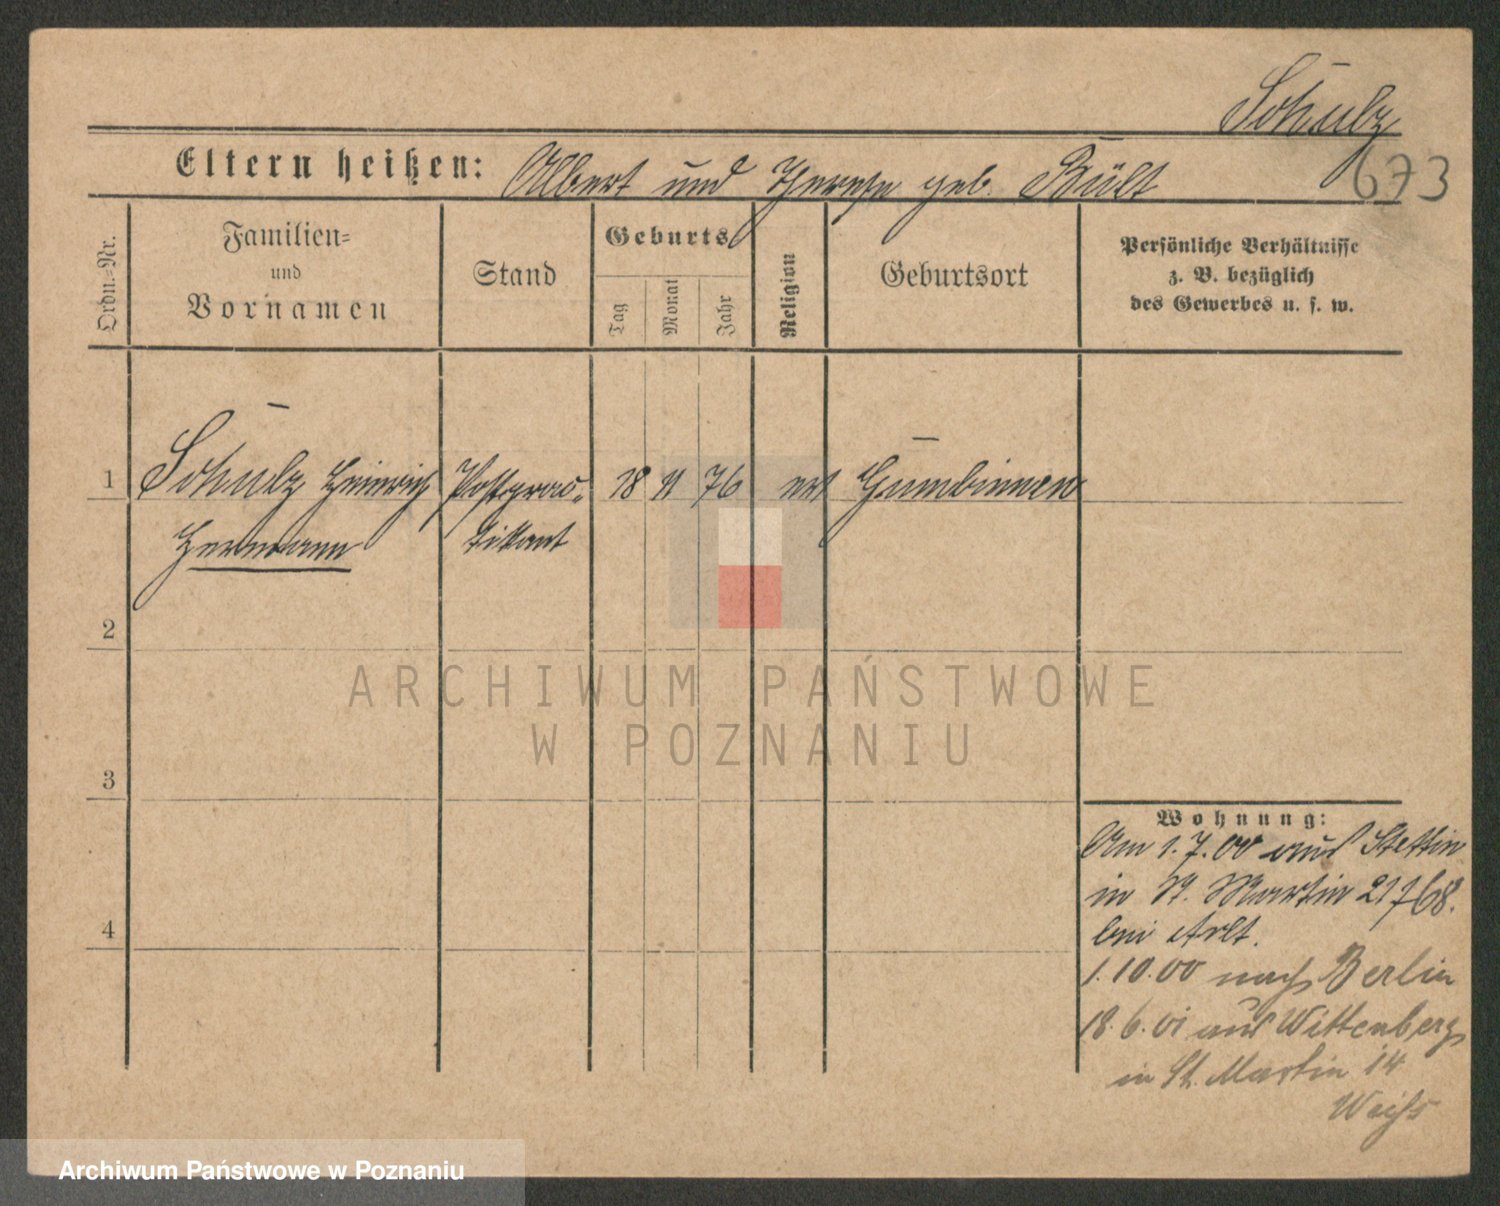 Schulz
Eltern heißen: Albert und Therese geb. Bült
673
Ordn.-Nr.
Familien-
und
Vornamen
Stand
Geburts
Tag
Monat
Jahr
Religion
Geburtsort
Persönliche Verhältnisse
z. B. bezüglich
des Gewerbes u. s. w.
1 Schulz Heinrich Postprac- 18 11 76 Gumbinnen
Hermann tikant
2
3
4
Wohnung:
Am 1.7.00 aus Stettin
in St. Martin
bei Arlt.
1.10.00 nach Berlin
18.6.01 aus Wittenberg
in St. Martin 14
Weiß
ARCHIWUM PAŃSTWOWE
W POZNANIU
Archiwum Państwowe w Poznaniu